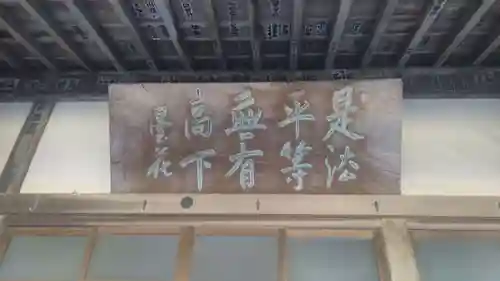 是法
平等
無有
高下